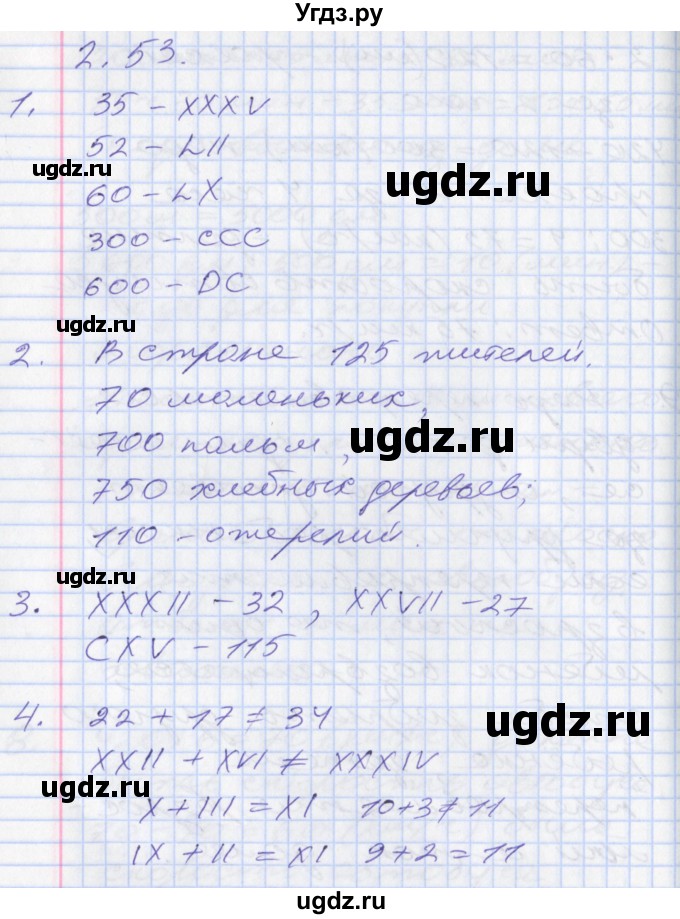 Угдз.ру
2.53.
1. 35 - XXXV
52 - LII
ugdz.ru
ugdz.ru
60 - LX
300 - CCC
600 - DC
ugdz.ru
2. В стране 125 жителей.
70 маленьких,
700 пальм,
ugdz.ru
ugdz.ru
750 хлебных деревьев;
110 - ожерелий.
ugdz.ru
3. XXXII - 32, XXVII - 27
CXV - 115
ugdz.ru
4. 22 + 17 ≠ 34
ugdz.ru
XXII + XVI ≠ XXXIV
ugdz.ru
X + III = XI 10+3≠11
IX + II = XI 9+2=11
ugdz.ru
Угдз.ру